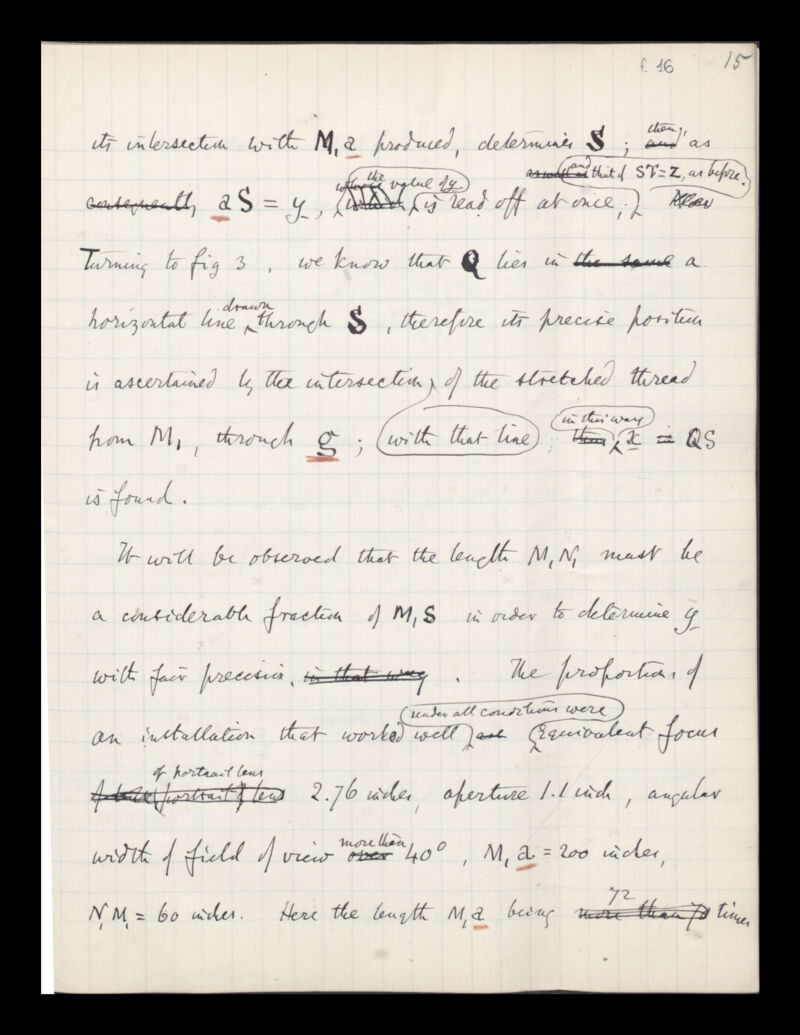 f. 16 15
its intersection with M, a produced, determines S ; then, and as
consequently, a S = y, the value of y is read off at once, and that of ST = Z, as before.
Turning to fig 3 , we know that Q lies in the same a
horizontal line drawn through S , therefore its precise position
is ascertained by the intersection, of the stretched thread
from M, , through g ; with that line ; in this way thus x = QS
is found.
It will be observed that the length M, N, must be
a considerable fraction of M, S in order to determine y
with fair precision, in that way . The proportions of
an installation that worked well under all conditions were are Equivalent focus
of portrait lens 2.76 inches, aperture 1.1 inch, angular
width of field of view more than over 40° , M, a = 200 inches,
N, M, = 60 inches. Here the length M, a being 72 more than 70 times